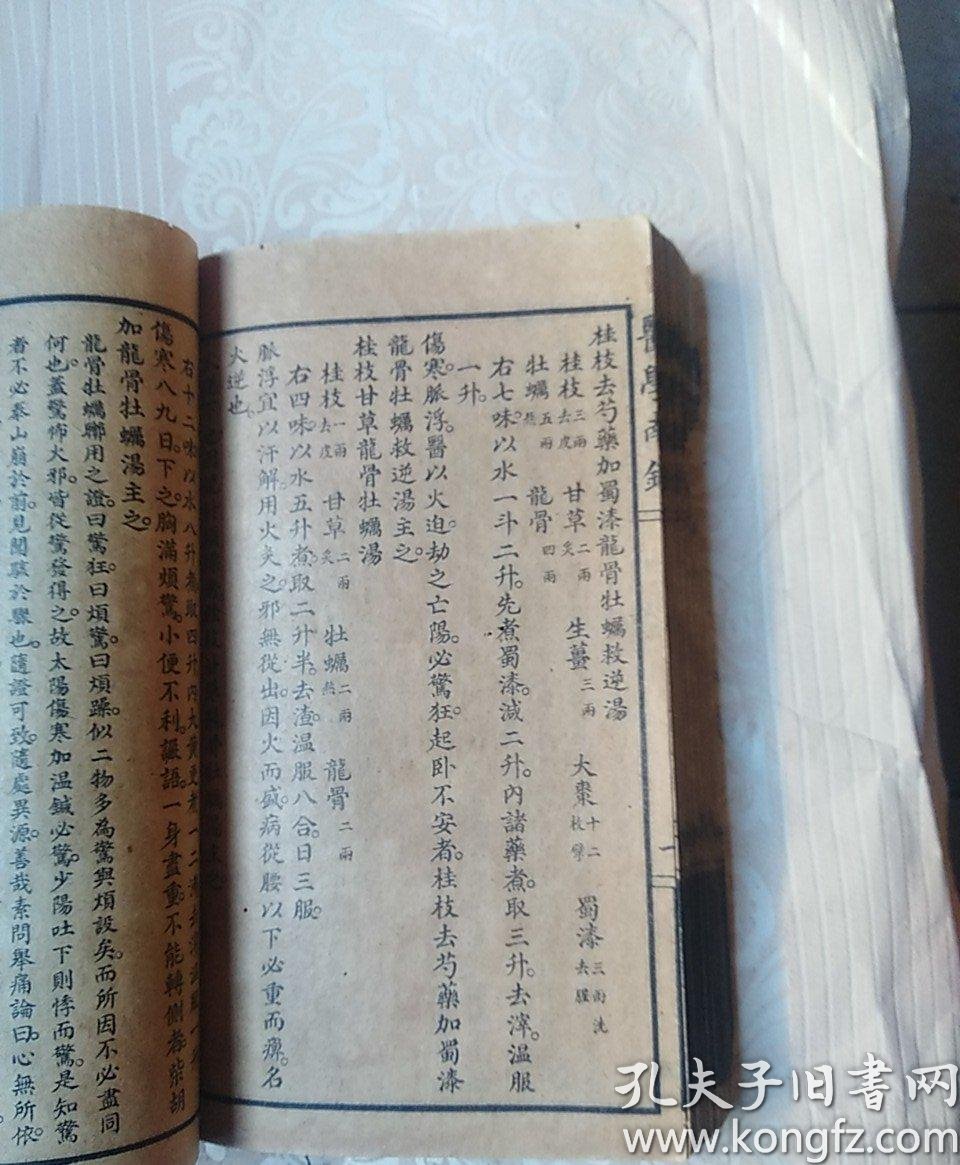 桂枝去芍藥加蜀漆龍骨牡蠣救逆湯
桂枝三兩去皮 甘草二兩炙 生薑三兩 大棗十二枚擘 蜀漆三兩洗去腥
牡蠣五兩熬 龍骨四兩
右七味以水一斗二升。先煮蜀漆。減二升。內諸藥。煮取三升。去滓。溫服
一升。
傷寒脈浮。醫以火迫劫之亡陽。必驚狂。起卧不安者。桂枝去芍藥加蜀漆
龍骨牡蠣救逆湯主之。
桂枝甘草龍骨牡蠣湯
桂枝一兩去皮 甘草二兩炙 牡蠣二兩熬 龍骨二兩
右四味。以水五升。煮取二升半。去渣。溫服八合。日三服。
脈浮宜以汗解。用火灸之。邪無從出。因火而盛。病從腰以下必重而痹。名
火逆也。
右十二味以水八升煮取四升內大黃更煮一二沸去滓溫服一升
傷寒八九日。下之。胸滿煩驚。小便不利。讝語。一身盡重。不能轉側者。柴胡
加龍骨牡蠣湯主之。
龍骨牡蠣聯用之證。曰驚狂。曰煩驚。曰煩躁。似二物多為驚與煩設矣。而所因不必盡同
何也。蓋驚怖火邪。皆從驚發得之。故太陽傷寒加温鍼必驚。少陽吐下則悸而驚。是知驚
者不必泰山崩於前。見聞駭於驟也。隨證可致。隨處異源。善哉素問舉痛論曰。心無所依。
醫學
一
孔夫子旧书网
www.kongfz.com